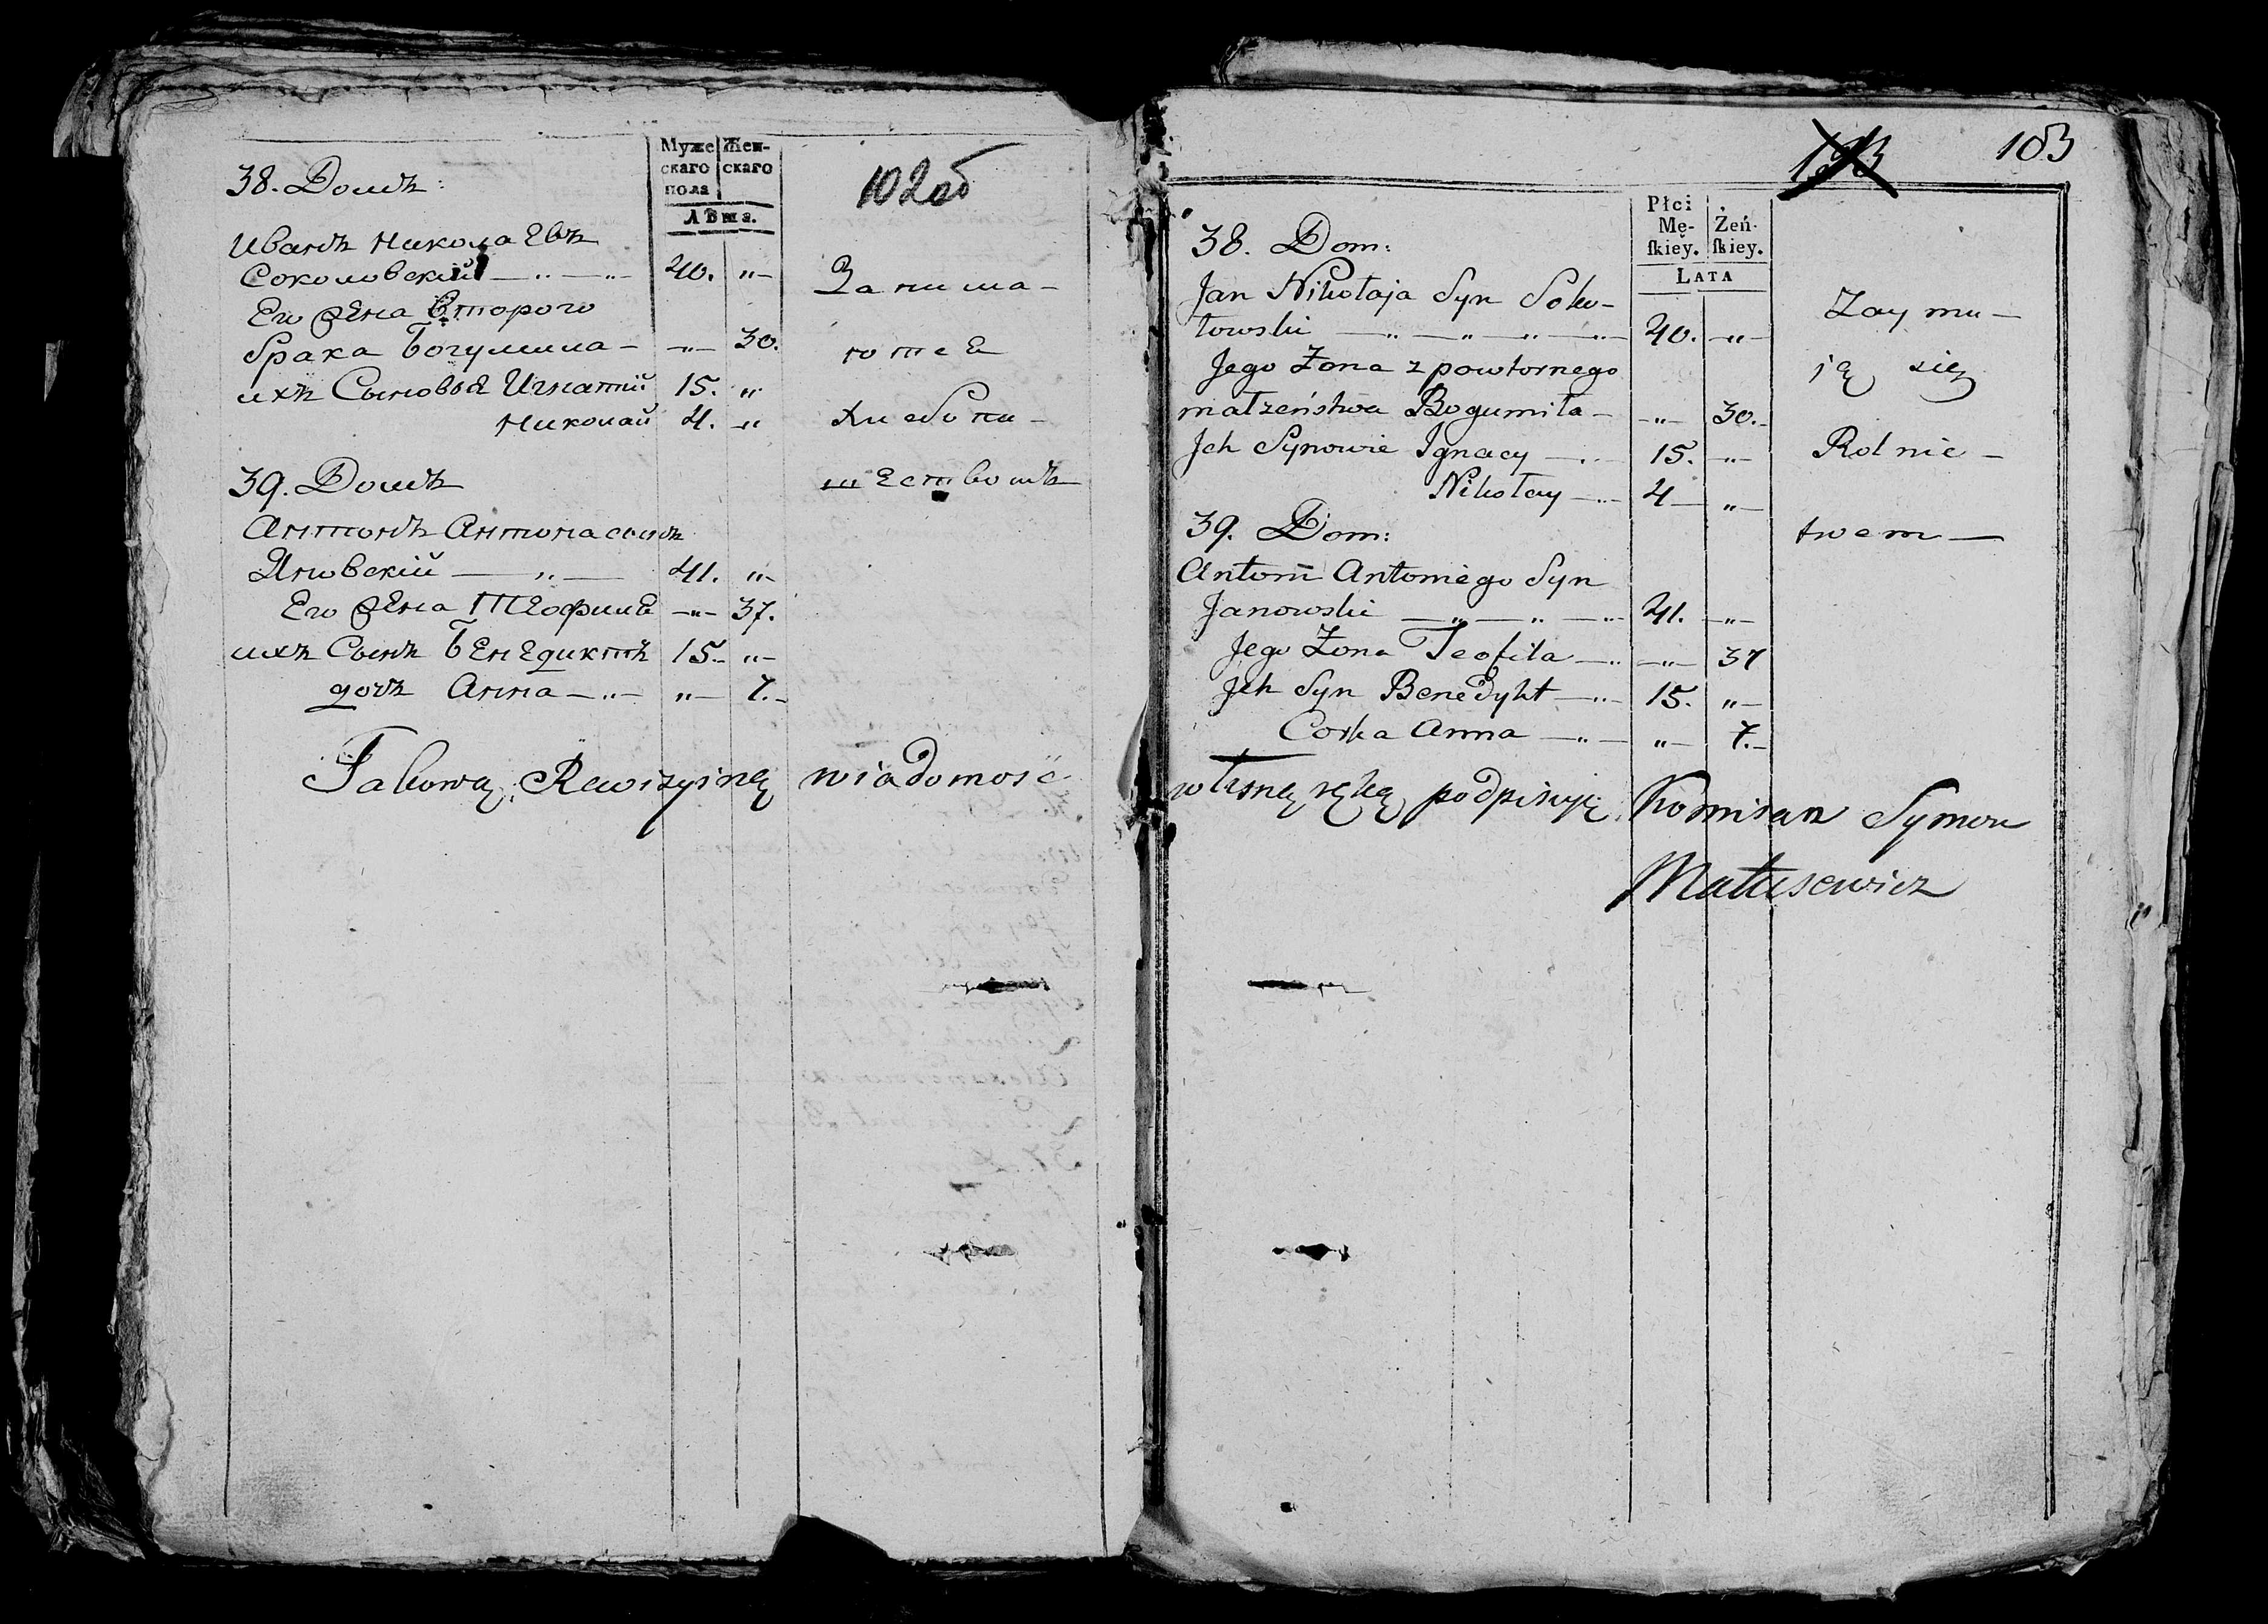 Муже
скаго
пола
Жен-
скаго
Лѣта.
102об
38. Домъ:
Иванъ Николаевъ
Соколовскій 40. "
Его жена второго
брака Богумила " 30.
ихъ Сыновья Игнатій 15. "
Николай 4. "
39. Домъ
Антонъ Антона сынъ
Яновскій 41. "
Его жена Теофиля " 37.
ихъ Сынъ Бенедиктъ 15. "
дочь Анна " 7.
Занима-
ются
хлебопа-
шествомъ
Takową Rewizyiną wiadomość
103
Płci
Mę-
ſkiey.
Żeń-
ſkiey.
LATA
38. Dom:
Jan Nikołaja Syn Soko-
łowski 40. "
Jego Żona z powtornego
małżeństwa Bogumiła " 30.
Jch Synowie Ignacy 15. "
Nikołay 4 "
39. Dom:
Antoni Antoniego Syn
Janowski 41. "
Jego Żona Teofila " 37
Jch Syn Benedykt 15. "
Corka Anna " 7.
Zaymu-
ią się
Rolnic-
twem
własną ręką podpisuję Komisarz Symon
Matusewicz